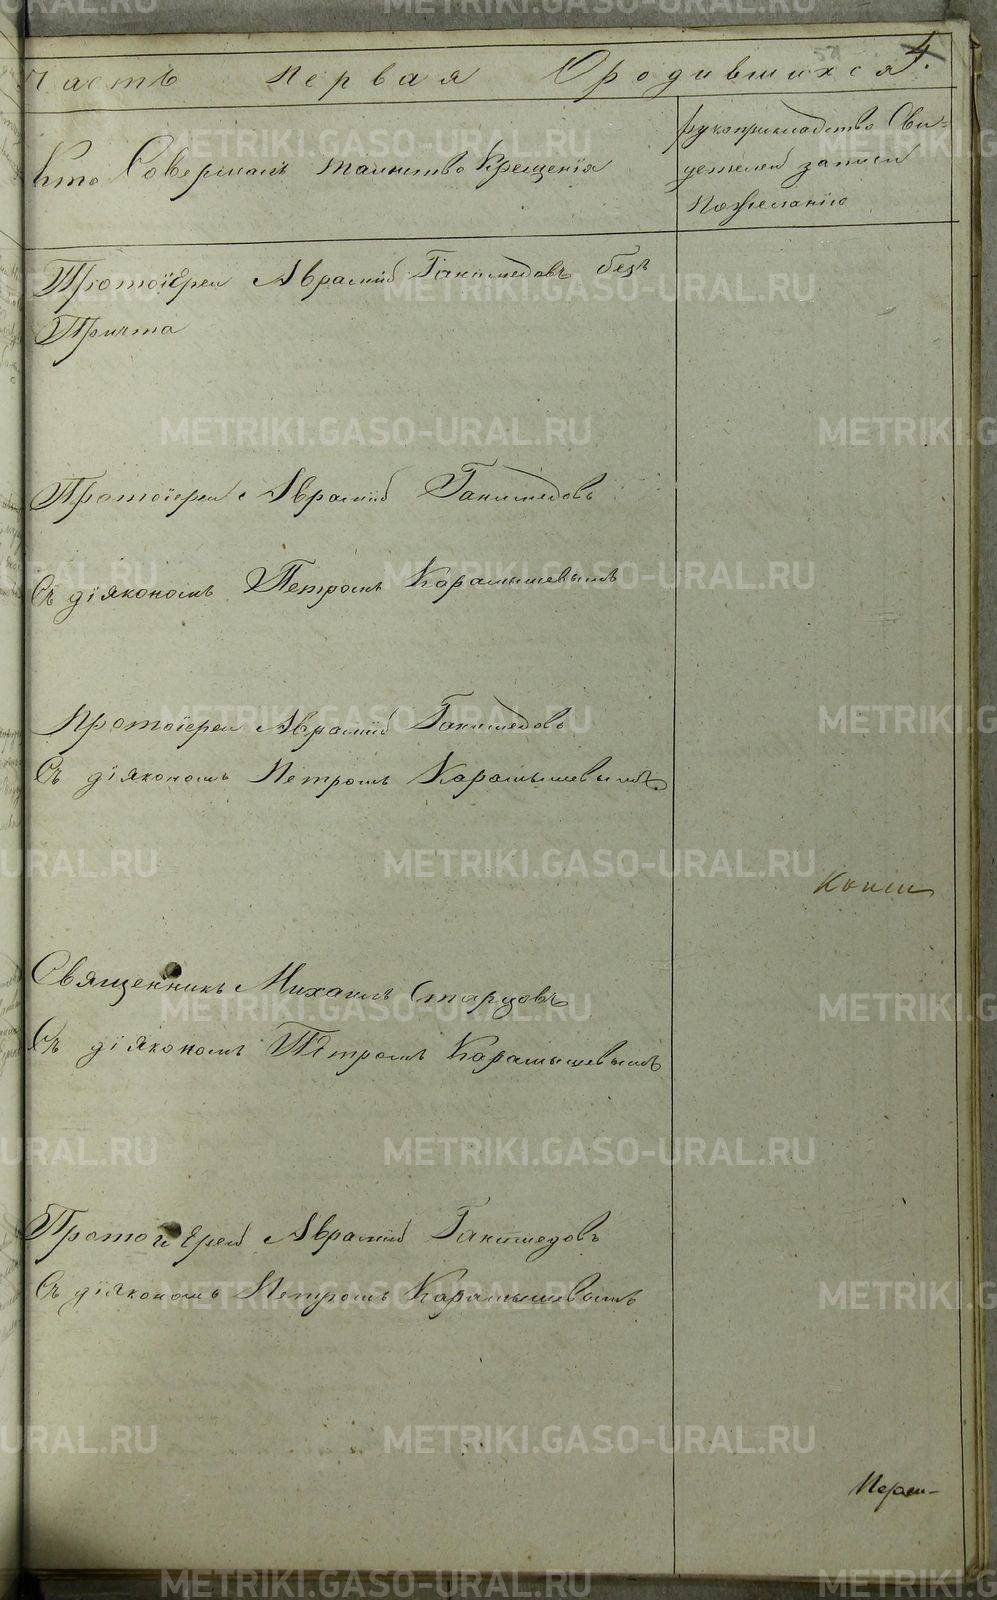 Часть Первая О родившихся 4.
Кто Совершалъ таинство Крещенія
рукоприкладство Сви-
детелей записи
По желанію
Протоіерей Аврамій Ганимедовъ безъ
Причта
Протоіерей Аврамій Ганимедовъ
Съ діякономъ Петромъ Карамышевымъ
Протоіерей Аврамій Ганимедовъ
Съ діякономъ Петромъ Карамышевымъ
Священникъ Михаилъ Старцовъ
Съ діякономъ Петромъ Карамышевымъ
Протоіерей Аврамій Ганимедовъ
Съ діякономъ Петромъ Карамышевымъ
METRIKI.GASO-URAL.RU